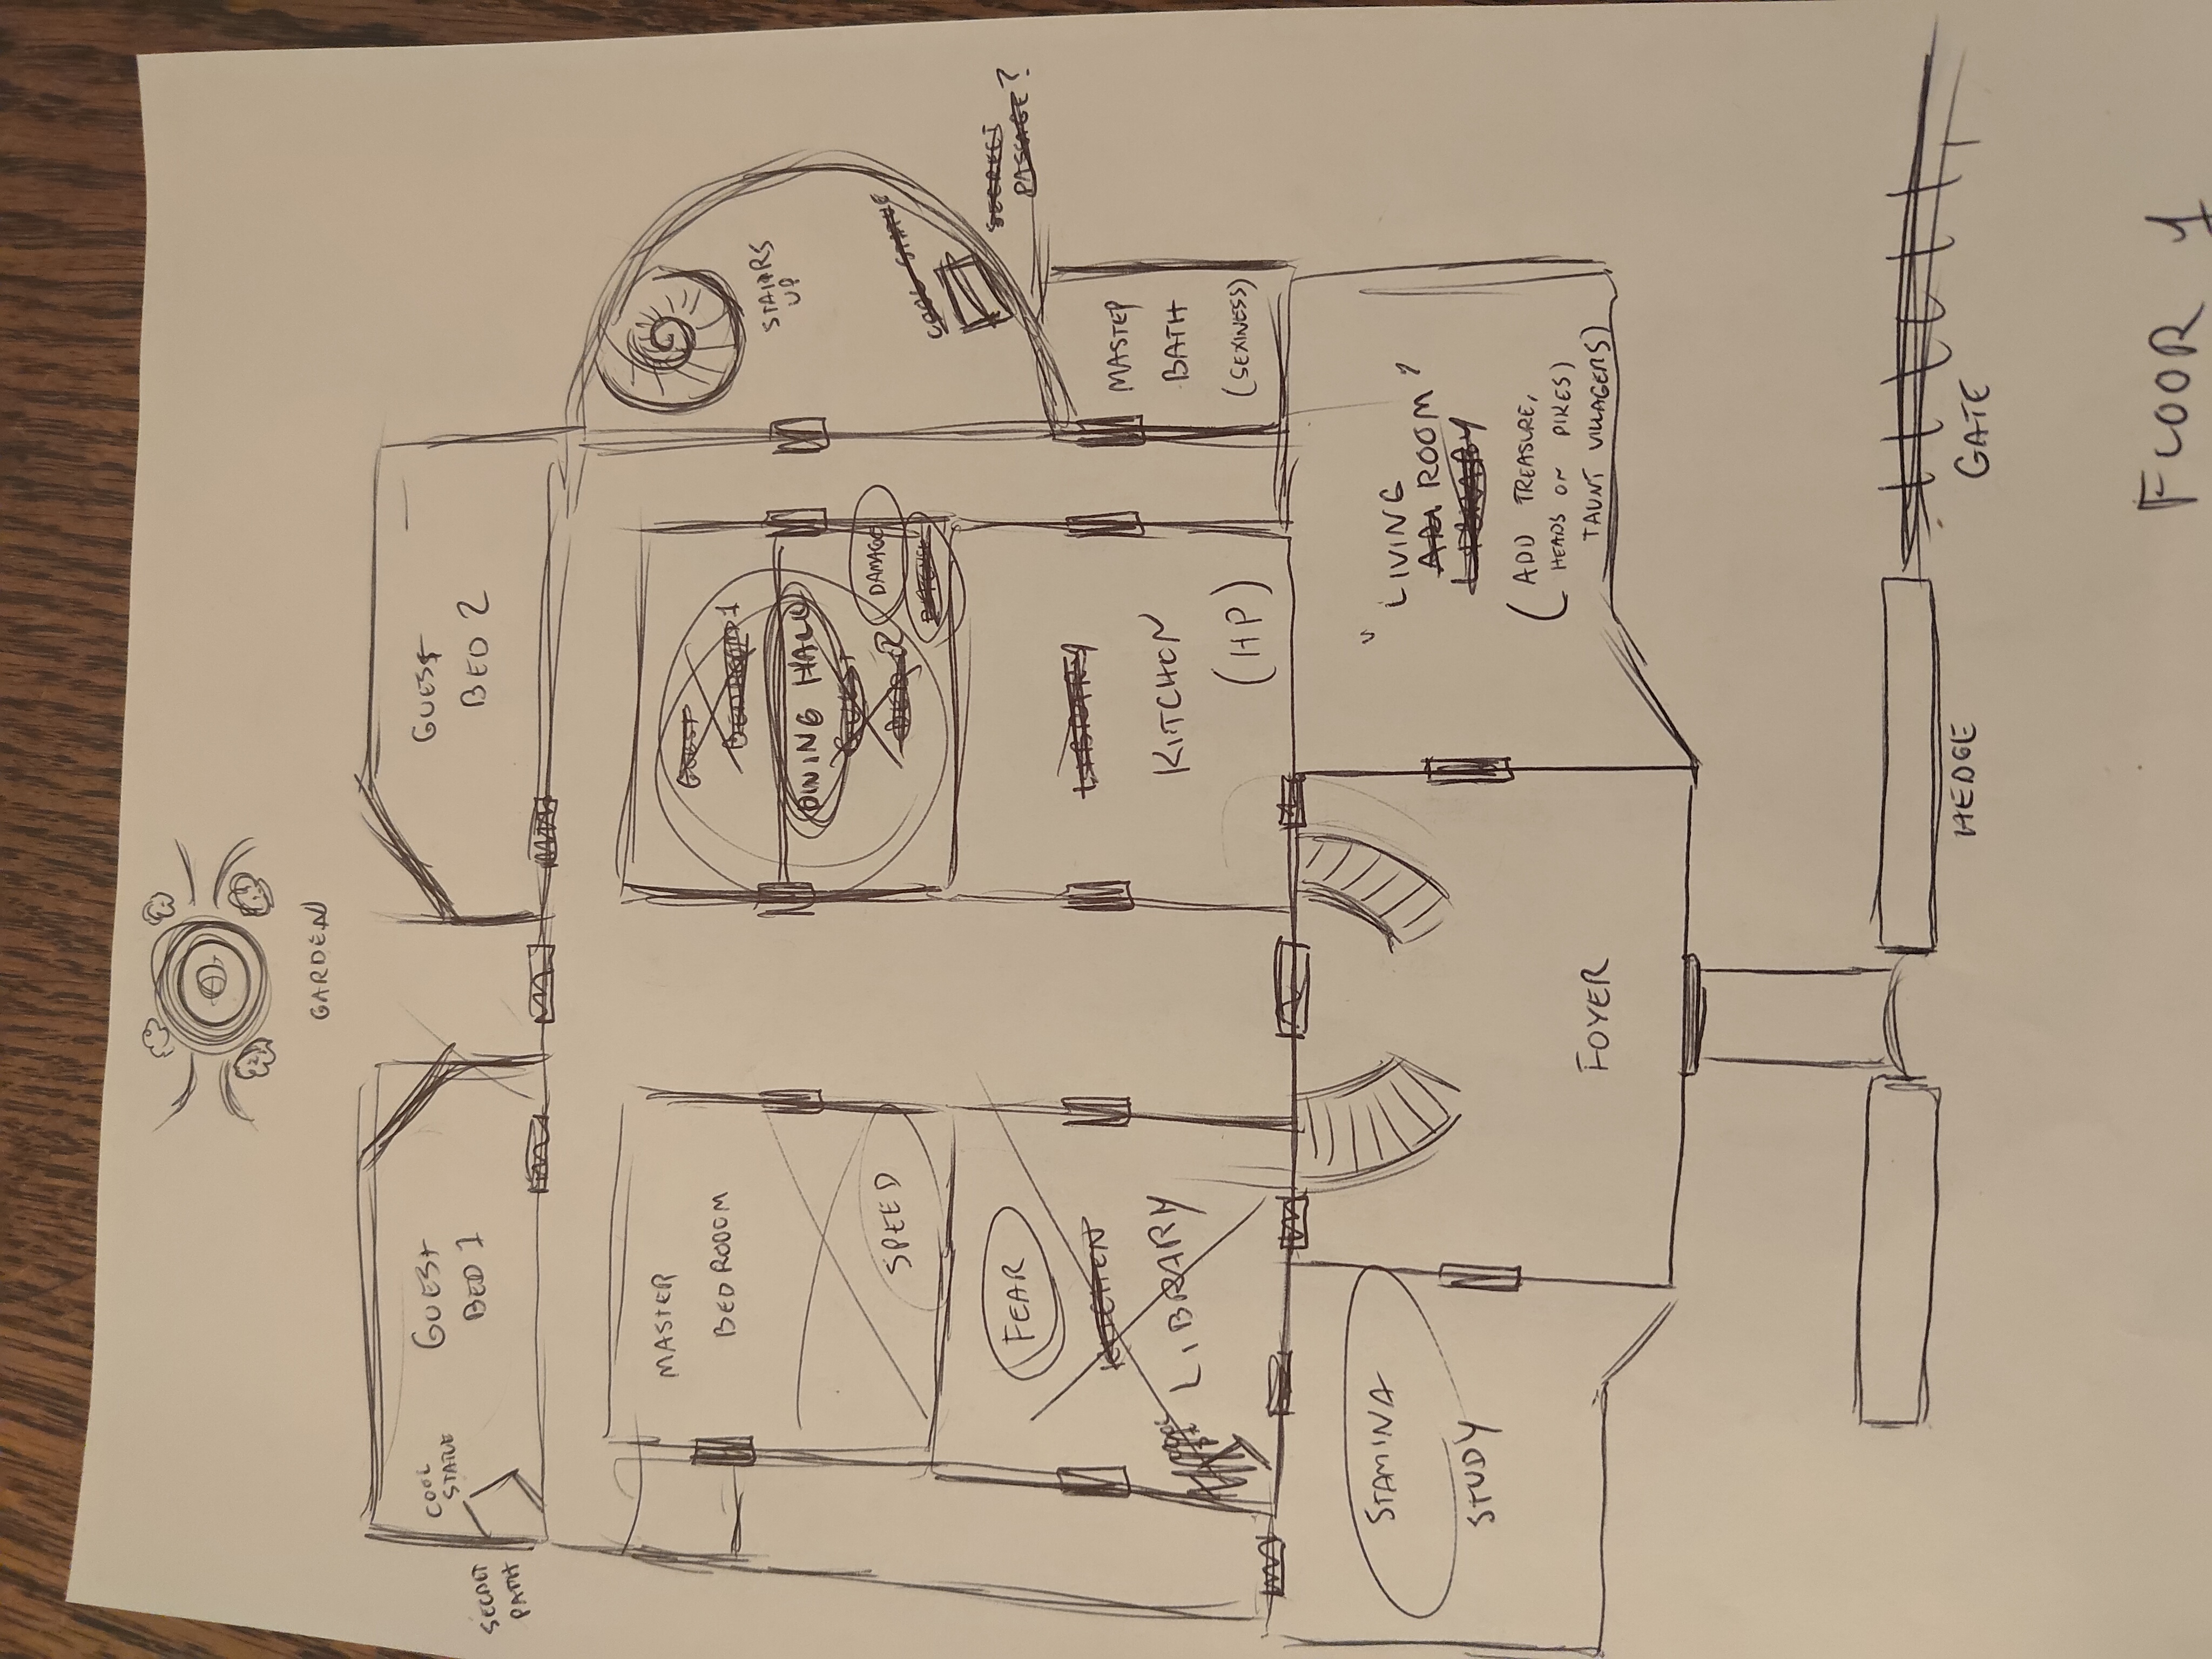 GARDEN
COOL
STATUE
SECRET
PATH
GUEST
BED 1
GUEST
BED 2
MASTER
BEDROOOM
SPEED
GUEST
BEDROOM 1
DINING HALL
GUEST
BED 2
DAMAGE
DEFENSE
STAIRS
UP
COOL STATUE
SECRET
PASSAGE?
FEAR
KITCHEN
LIBRARY
LIBRARY
KITCHEN
(HP)
MASTER
BATH
(SEXINESS)
STAMINA
STUDY
FOYER
"LIVING
ROOM"
LIBRARY
(ADD TREASURE,
HEADS ON PIKES)
TAUNT VILLAGERS)
HEDGE
GATE
FLOOR 1